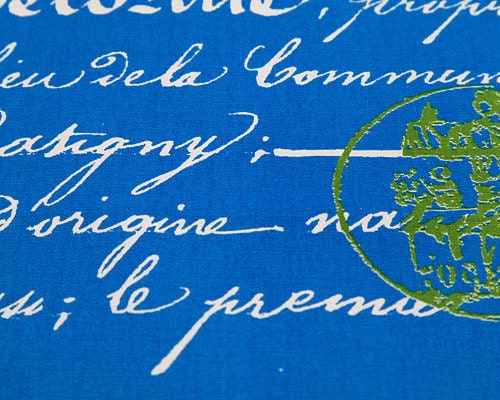 lieu de la Commun
Patigny;
d'origine na
le premie